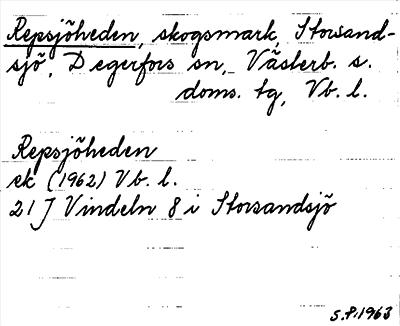 Repsjöheden, skogsmark, Storsand-
sjö, Degerfors sn, Västerb. s.
doms. tg, Vb. l.
Repsjöheden
ek (1962) Vb. l.
21 J Vindeln 8 i Storsandsjö
S.P. 1963